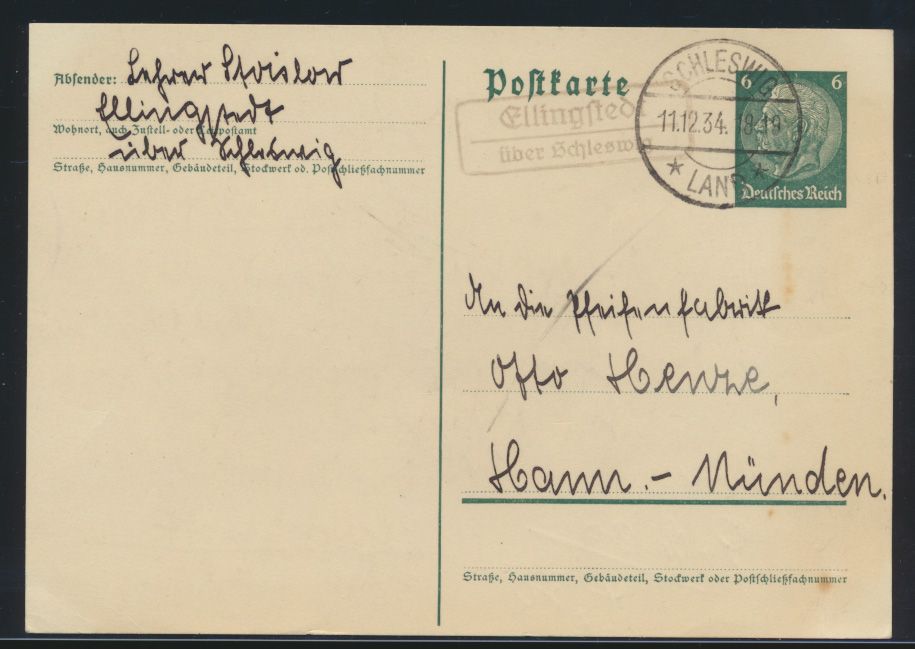 Absender: Lehrer Stoislow
Ellingstedt
Wohnort, auch Zustell- oder Leitpostamt
über Schleswig
Straße, Hausnummer, Gebäudeteil, Stockwerk od. Postschließfachnummer
Postkarte
Ellingsted
über Schleswig
SCHLESWIG
11.12.34. 18-19
* LAND *
6 6
Deutsches Reich
An die Pfeifenfabrik
Otto Henze,
Hann.-Münden.
Straße, Hausnummer, Gebäudeteil, Stockwerk oder Postschließfachnummer